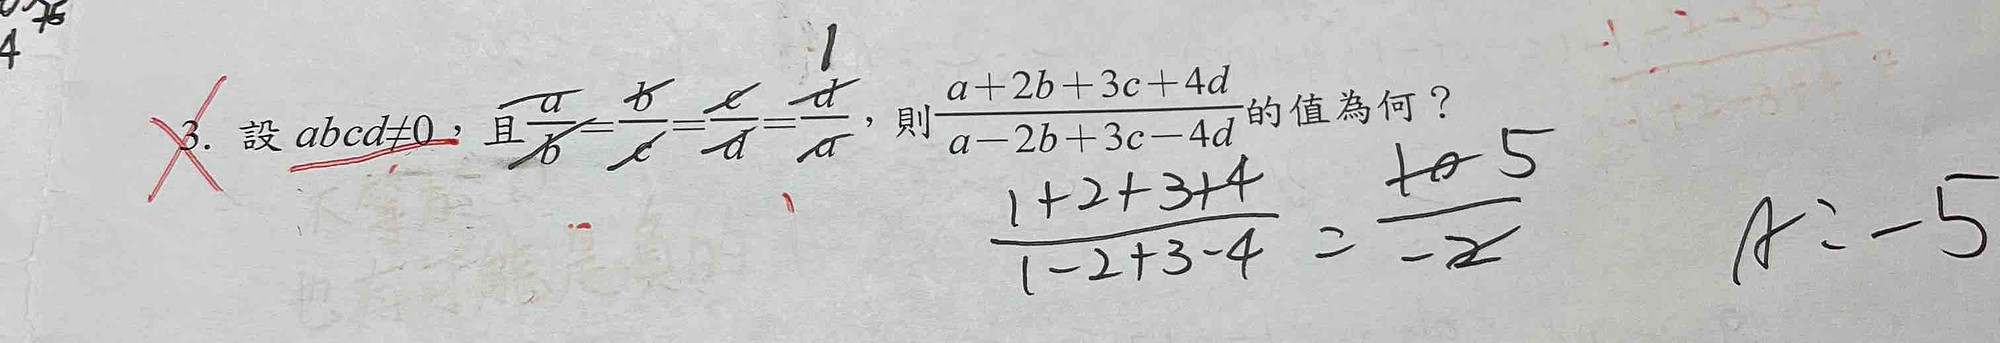 4
1
3. 設 abcd≠0，且 a/b = b/c = c/d = d/a，則 (a+2b+3c+4d)/(a−2b+3c−4d) 的值為何？
(1+2+3+4)/(1-2+3-4) = 10 5/-2
A: -5